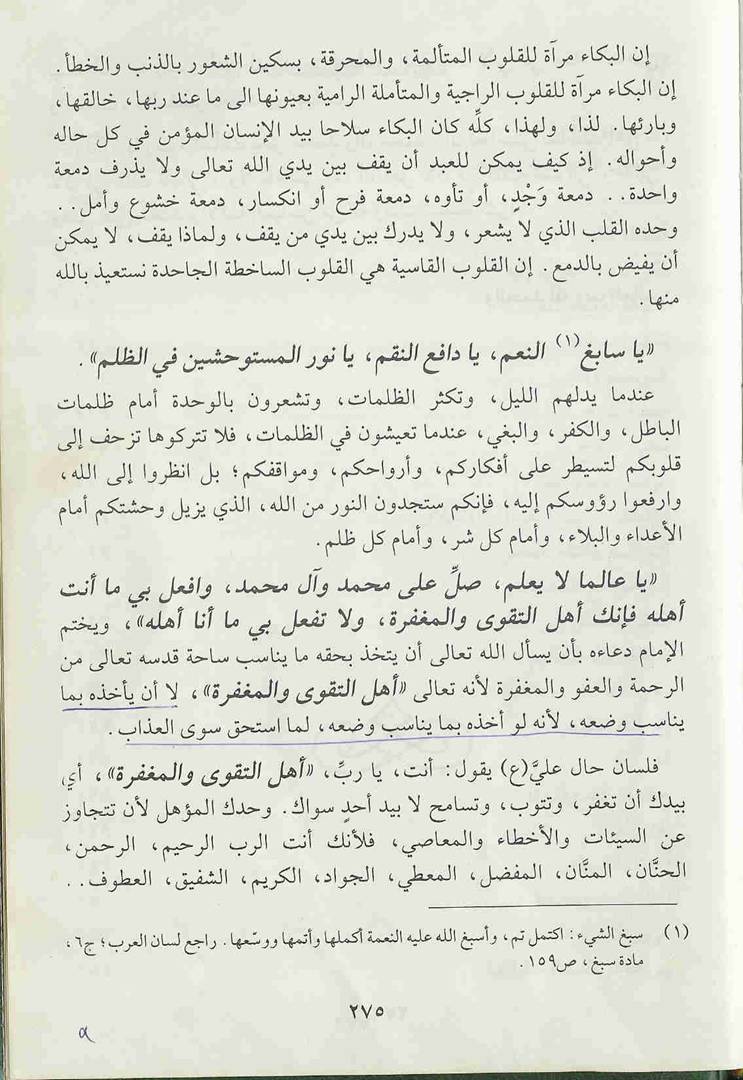 إن البكاء مرآة للقلوب المتألمة، والمحرقة، بسكين الشعور بالذنب والخطأ.
إن البكاء مرآة للقلوب الراجية والمتأملة الرامية بعيونها الى ما عند ربها، خالقها،
وبارئها. لذا، ولهذا، كلِّه كان البكاء سلاحا بيد الإنسان المؤمن في كل حاله
وأحواله. إذ كيف يمكن للعبد أن يقف بين يدي الله تعالى ولا يذرف دمعة
واحدة.. دمعة وَجْدٍ، أو تأوه، دمعة فرح أو انكسار، دمعة خشوع وأمل..
وحده القلب الذي لا يشعر، ولا يدرك بين يدي من يقف، ولماذا يقف، لا يمكن
أن يفيض بالدمع. إن القلوب القاسية هي القلوب الساخطة الجاحدة نستعيذ بالله
منها.
«يا سابغ(١) النعم، يا دافع النقم، يا نور المستوحشين في الظلم».
عندما يدلهم الليل، وتكثر الظلمات، وتشعرون بالوحدة أمام ظلمات
الباطل، والكفر، والبغي، عندما تعيشون في الظلمات، فلا تتركوها تزحف إلى
قلوبكم لتسيطر على أفكاركم، وأرواحكم، ومواقفكم؛ بل انظروا إلى الله،
وارفعوا رؤوسكم إليه، فإنكم ستجدون النور من الله، الذي يزيل وحشتكم أمام
الأعداء والبلاء، وأمام كل شر، وأمام كل ظلم.
«يا عالما لا يعلم، صلِّ على محمد وآل محمد، وافعل بي ما أنت
أهله فإنك أهل التقوى والمغفرة، ولا تفعل بي ما أنا أهله»، ويختم
الإمام دعاءه بأن يسأل الله تعالى أن يتخذ بحقه ما يناسب ساحة قدسه تعالى من
الرحمة والعفو والمغفرة لأنه تعالى «أهل التقوى والمغفرة»، لا أن يأخذه بما
يناسب وضعه، لأنه لو أخذه بما يناسب وضعه، لما استحق سوى العذاب.
فلسان حال عليَّ(ع) يقول: أنت، يا ربِّ، «أهل التقوى والمغفرة»، أي
بيدك أن تغفر، وتتوب، وتسامح لا بيد أحدٍ سواك. وحدك المؤهل لأن تتجاوز
عن السيئات والأخطاء والمعاصي، فلأنك أنت الرب الرحيم، الرحمن،
الحنَّان، المنَّان، المفضل، المعطي، الجواد، الكريم، الشفيق، العطوف..
(١) سبغ الشيء: اكتمل تم، وأسبغ الله عليه النعمة أكملها وأتمها ووسّعها. راجع لسان العرب؛ ج٦،
مادة سبغ، ص١٥٩.
٢٧٥